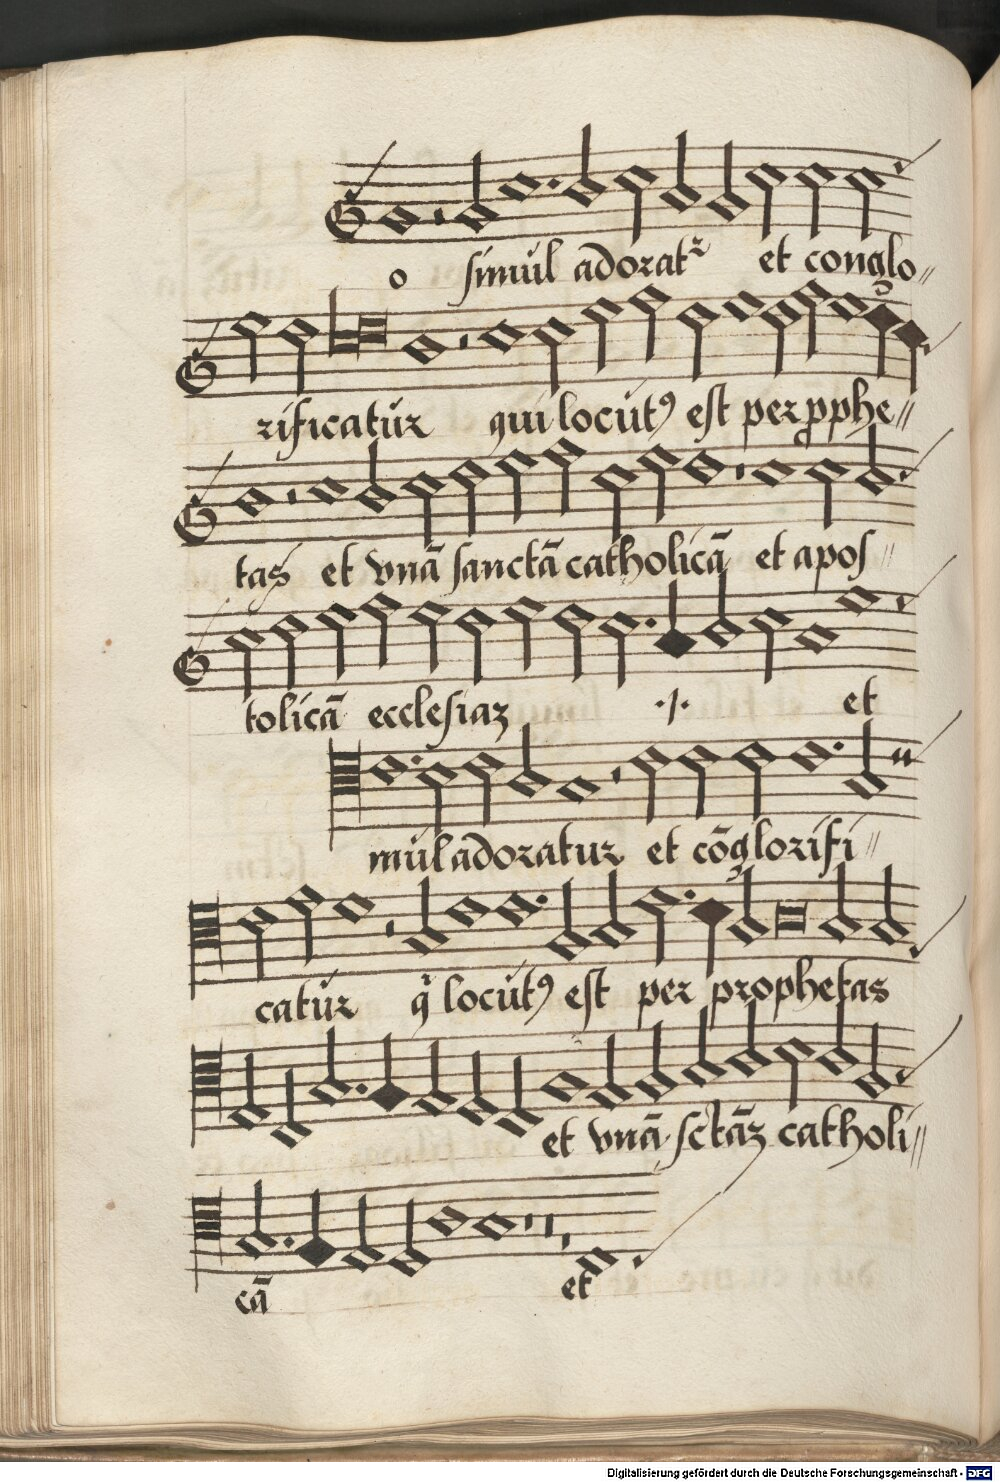 o simul adoratᷣ et conglo//
rificatur qui locutꝰ est per ꝓphe//
tas et vnā sanctā catholicā et apos//
tolicā ecclesiaz ·/· et
mul adoratur et cōglorifi//
catur q locutꝰ est per prophetas
et vnā sctāz catholi//
cā et
Digitalisierung gefördert durch die Deutsche Forschungsgemeinschaft - DFG